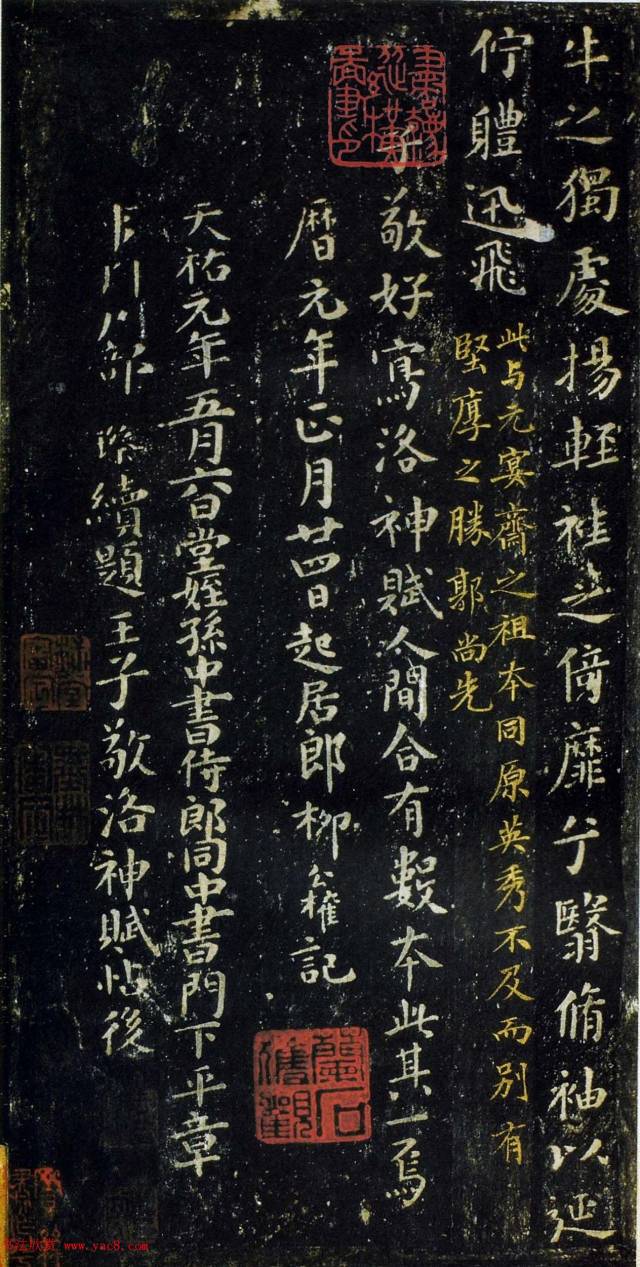 牛之獨處揚輕袿之倚靡兮翳脩袖以延
佇體迅飛
此与元宴齋之祖本同原英秀不及而別有
堅厚之勝郭尚先
子敬好寫洛神賦人間合有數本此其一焉
曆元年正月廿四日起居郎柳公權記
天祐元年五月六日堂姪孫中書侍郎同中書門下平章
部 續題王子敬洛神賦帖後
法欣赏 www.yac8.com